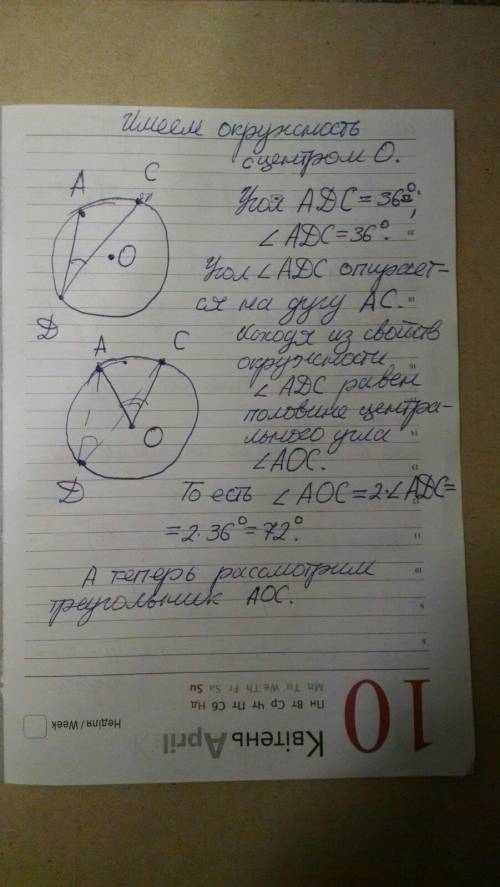 Имеем окружность
с центром О.
A
C
Угол ADC = 36°;
∠ADC = 36°.
O
Угол ∠ADC опирает-
ся на дугу AC.
D
A
C
Исходя из свойств
окружности
∠ADC равен
половине центра-
льного угла
∠AOC.
O
D
То есть ∠AOC = 2·∠ADC =
= 2·36° = 72°.
А теперь рассмотрим
треугольник AOC.
10
Квітень April
Пн Вт Ср Чт Пт Сб Нд
Mn Tu We Th Fr Sa Su
Неділя / Week